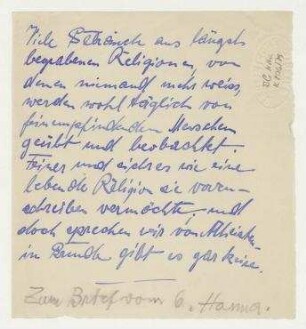 Viele Bräuche aus längst
begrabenen Religionen, von
denen niemand mehr weiss,
werden wohl täglich von
feinempfindenden Menschen
geübt und beobachtet.
Feiner und sichrer wie eine
lebende Religion sie vorzu-
schreiben vermöchte, und
doch sprechen wir von Atheisten
im Grunde gibt es gar keine.
Zum Brief vom 6. Hanna.